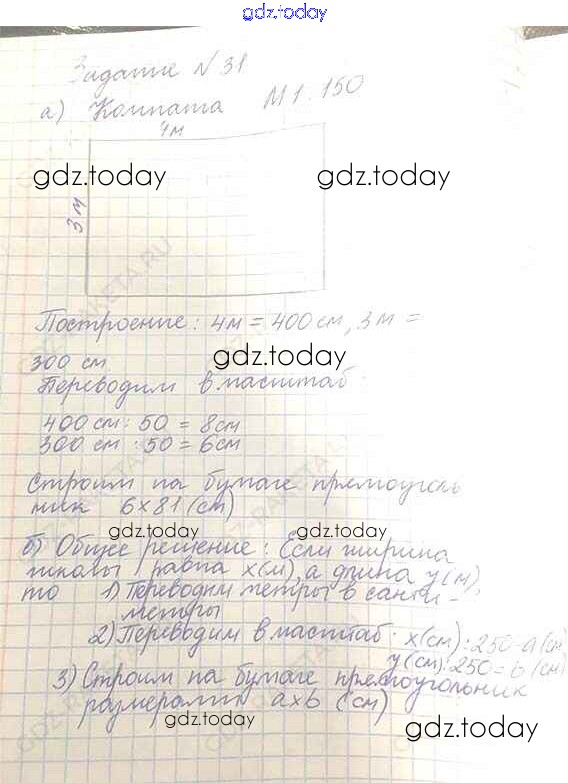 gdz.today
Задание N 31
а) Комната М 1 : 150
4м
gdz.today gdz.today
3 м
GDZ-RAKETA.RU
Построение : 4м = 400 см, 3м =
300 см gdz.today
Переводим в масштаб :
400 см : 50 = 8см
300 см : 50 = 6см
Строим на бумаге прямоуголь
ник 6 x 81 (см)
gdz.today gdz.today
б) Общее решение : Если ширина
школы равна x(м), а длина y(м),
то 1) Переводим метры в санти -
метры
2) Переводим в масштаб : x(см) : 250 = a(см)
y(см) : 250 = b (см)
3) Строим на бумаге прямоугольник
размерами a x b (см)
gdz.today gdz.today